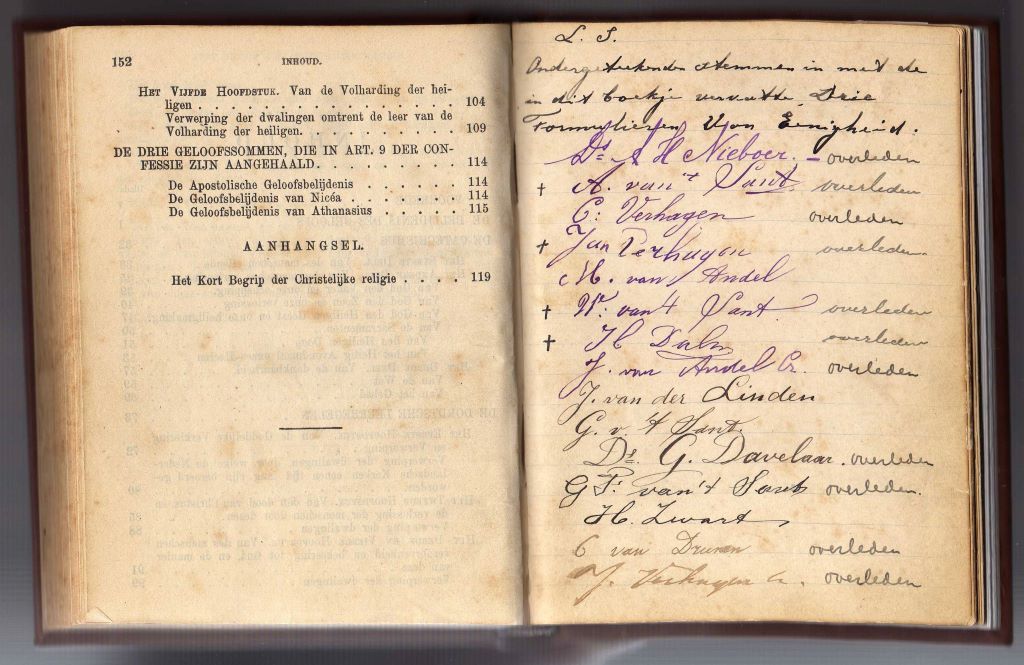 152 INHOUD.
HET VIJFDE HOOFDSTUK. Van de Volharding der hei-
ligen . . . . . . . . . . . . . . . . 104
Verwerping der dwalingen omtrent de leer van de
Volharding der heiligen. . . . . . . . . . 109
DE DRIE GELOOFSSOMMEN, DIE IN ART. 9 DER CON-
FESSIE ZIJN AANGEHAALD. . . . . . . . . 114
De Apostolische Geloofsbelijdenis . . . . . . 114
De Geloofsbelijdenis van Nicéa . . . . . . . 114
De Geloofsbelijdenis van Athanasius . . . . . 115
AANHANGSEL.
Het Kort Begrip der Christelijke religie . . . . 119
L. S.
Ondergeteekenden stemmen in met de
in dit boekje vervatte Drie
Formulieren van Eenigheid.
Ds. A H Nieboer. – overleden
† A. van 't Sant. overleden
C: Verhagen overleden
† Jan Verhagen overleden
M. van Andel
† W. van 't Sant overleden
† H overleden
J. van Andel Cz. overleden
J. van der Linden
G. v. 't Sant.
Ds. G. Davelaar. overleden
G P. van 't Sant overleden.
H. Zwart
C van Drunen overleden
J. Verhagen overleden